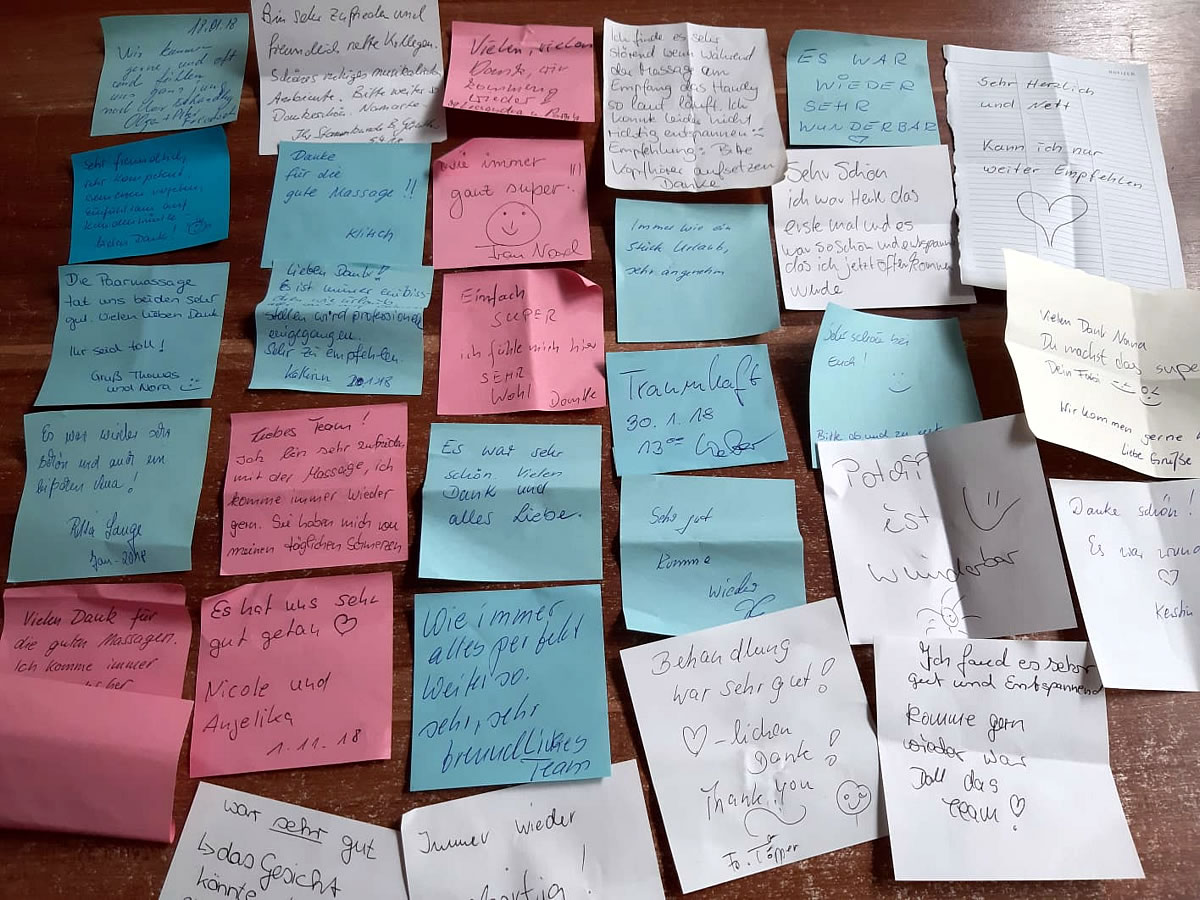 18.01.18
Wir kommen
gerne, und oft
und fühlen
uns ganz
Bin sehr zufrieden und
freundlich nette Kollegen.
ruhiges musikalisches
Ambiente. Bitte weiter so
Dankeschön. Namaste
Vielen, vielen
Dank, wir
kommen
wieder!
Ich finde es sehr
störend wenn während
der Massage am
Empfang das Handy
so laut läuft. Ich
konnte leider nicht
richtig entspannen
Empfehlung: Bitte
Kopfhörer aufsetzen
Danke
ES WAR
WIEDER
SEHR
WUNDERBAR
Sehr Herzlich
und Nett
Kann ich nur
weiter Empfehlen
Sehr freundlich,
sehr kompetent,
Vielen Dank!
Danke
für die
gute Massage!!
Klitsch
Wie immer
ganz super..
Frau Noad
Immer wie ein
Stück Urlaub,
sehr angenehm
Sehr Schön
ich war Heute das
erste mal und es
war so schön und entspann
das ich jetzt öffter kommen
würde
Die Paarmassage
tat uns beiden sehr
gut. Vielen lieben Dank
Ihr seid toll!
Gruß Thomas
und Nora
Lieben Dank!!
Es ist immer ein biss-
chen wie Urlaub.
stellen wird professionell
eingegangen.
Sehr zu empfehlen.
Einfach
SUPER
ich fühle mich hier
SEHR
Wohl Danke
Traumhaft
30.1.18
13
Sehr schön bei
Euch!
Bitte ab und zu
Vielen Dank Nana
Du machst das supe
Dein
Wir kommen gerne
liebe Grüße
Es war wieder sehr
schön und auch ein
Rita Lange
Jan. 2018
Liebes Team!
Ich bin sehr zufrieden
mit der Massage, ich
komme immer wieder
gern. Sie haben mich von
meinen täglichen Schmerzen
Es war sehr
schön. Vielen
Dank und
alles Liebe.
Sehr gut
komme
wieder
ist
wunderbar
Danke schön!
Es war wund
Vielen Dank für
die guten Massagen.
Ich komme immer
Es hat uns sehr
gut getan ♡
Nicole und
Anjelika
1.11.18
Wie immer
alles perfekt
Weiter so.
sehr, sehr
freundliches
Team
Behandlung
war sehr gut!
♡-lichen
Danke!
Thank you
Fr. Töpper
Ich fand es sehr
gut und Entspannend
komme gern
wieder war
Doll das
TEAM!♡
war sehr gut
↳das Gesicht
könnte
Immer wieder